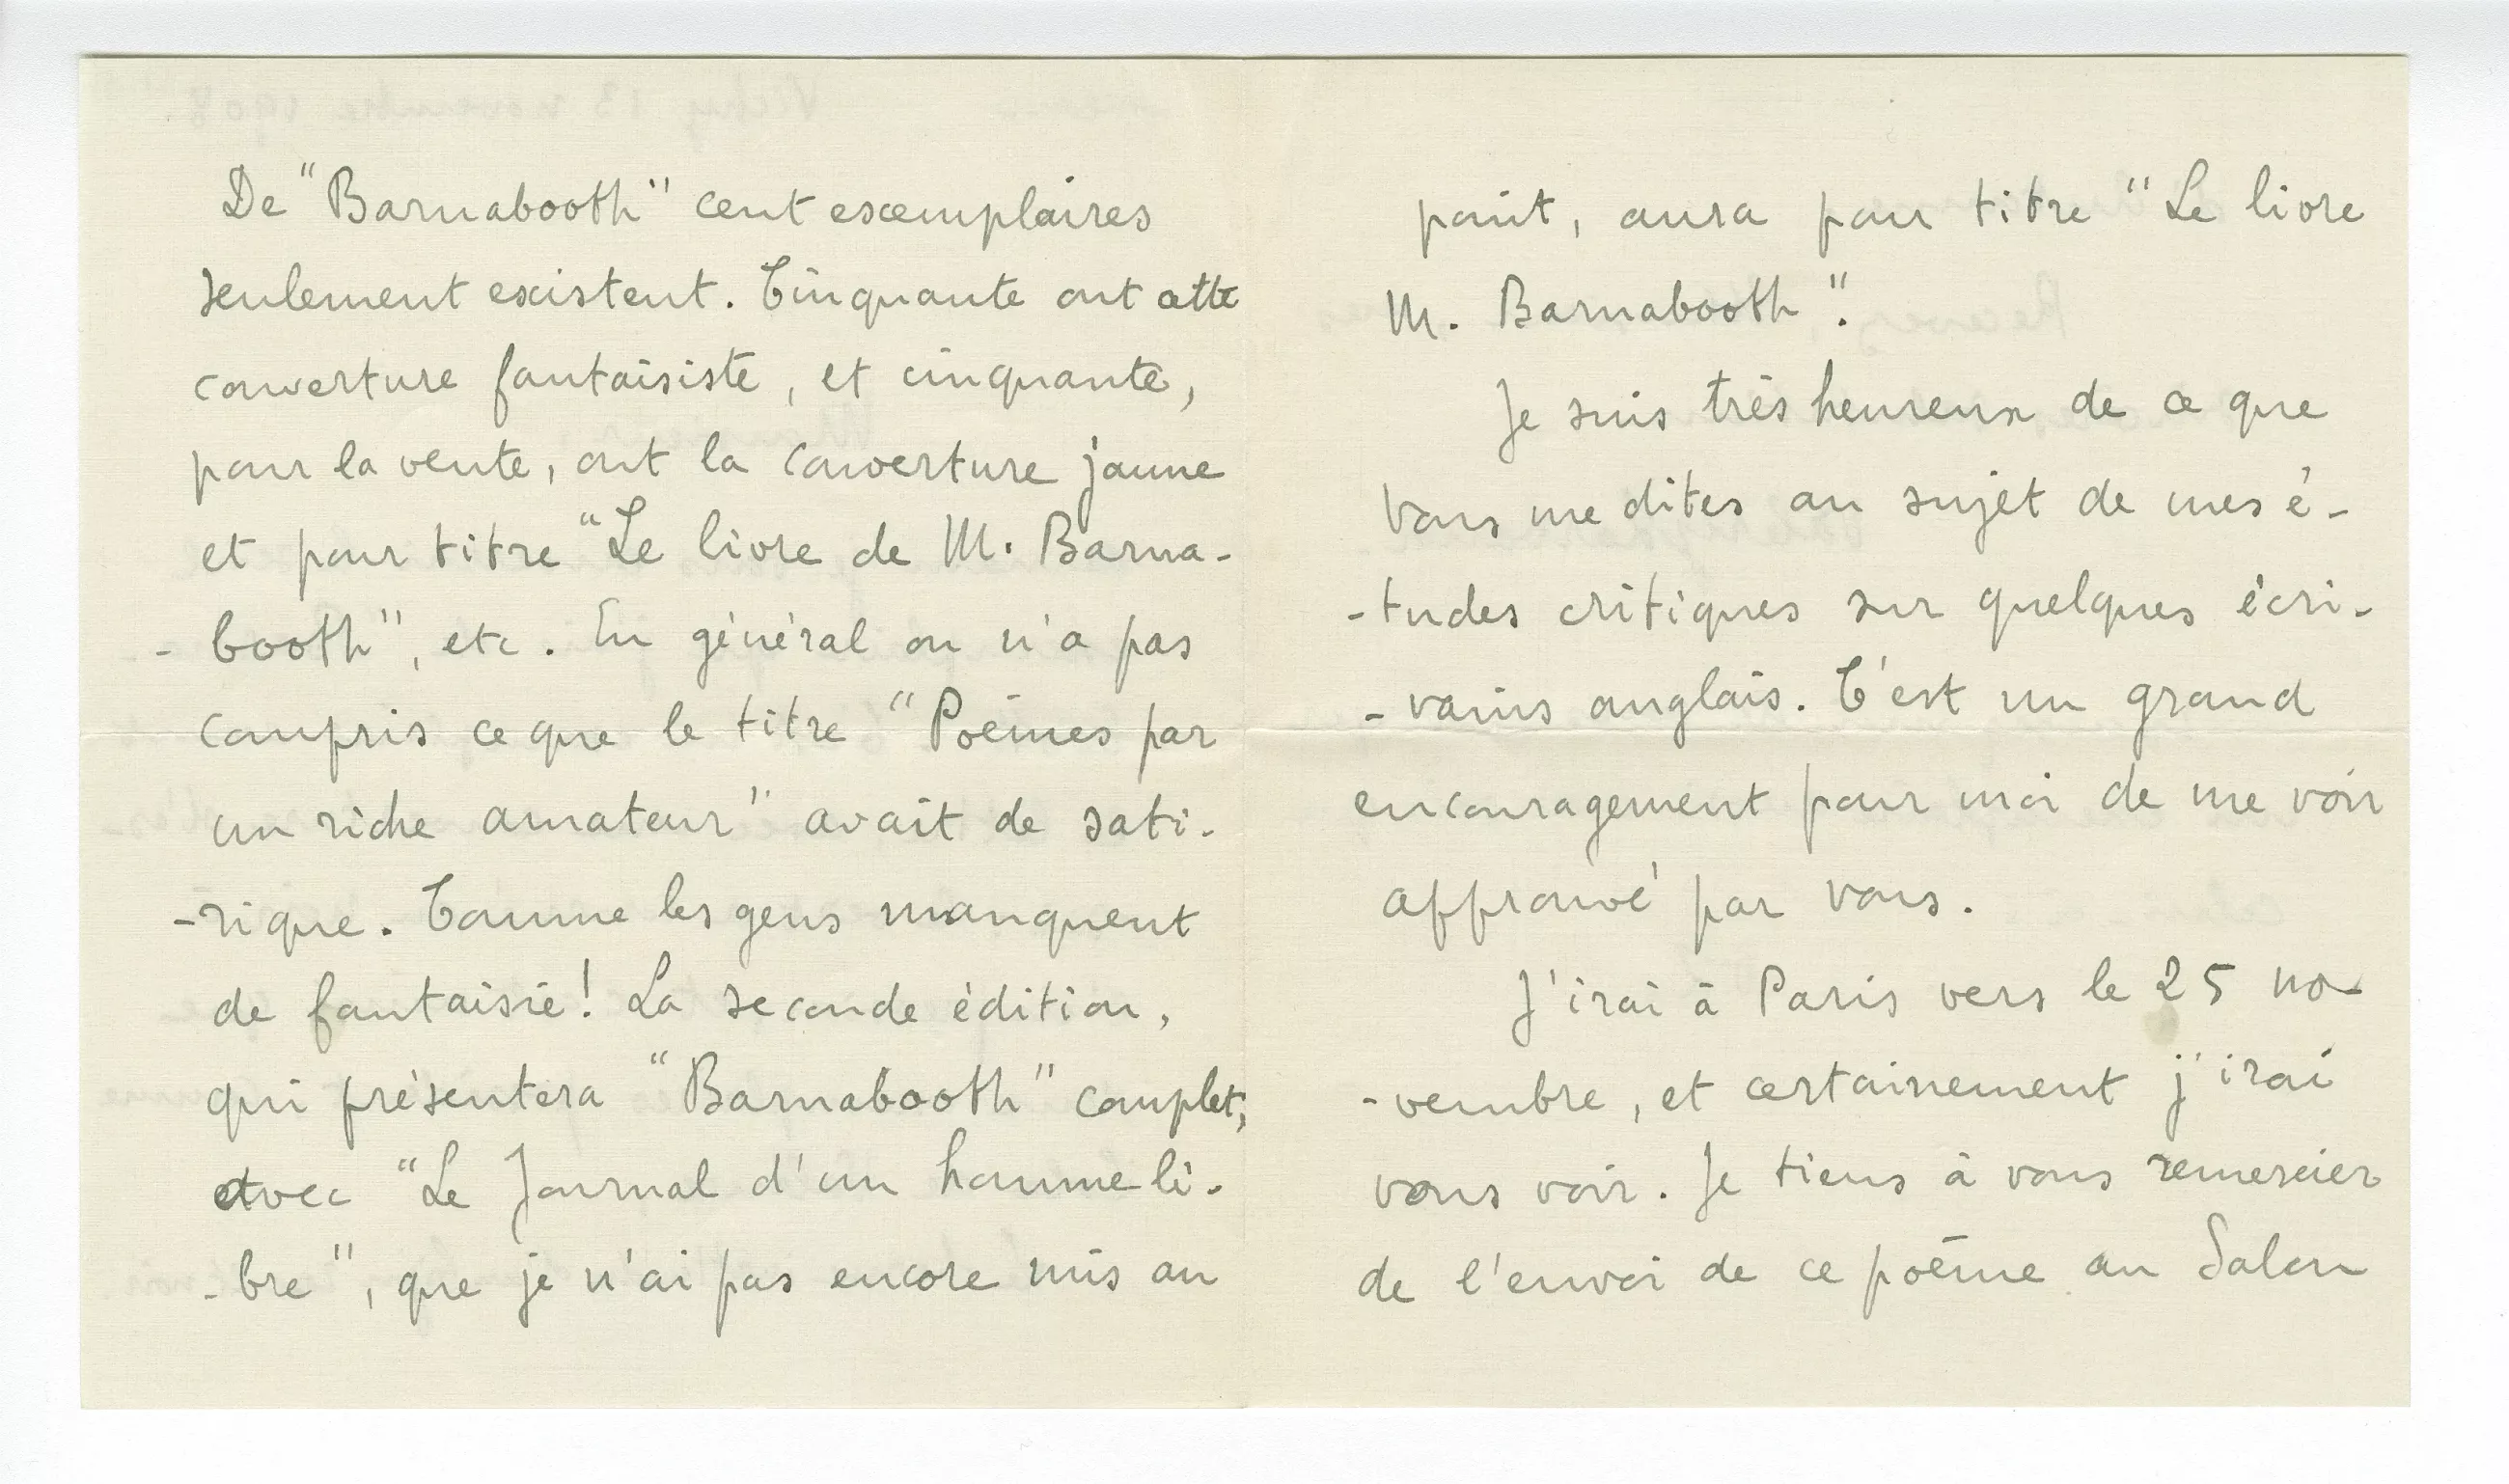 De "Barnabooth" cent exemplaires
seulement existent. Cinquante ont cette
couverture fantaisiste, et cinquante,
pour la vente, ont la couverture jaune
et pour titre "Le livre de M. Barna-
- booth", etc. En général on n'a pas
compris ce que le titre "Poèmes par
un riche amateur" avait de sati-
-rique. Comme les gens manquent
de fantaisie! La seconde édition,
qui présentera "Barnabooth" complet,
avec "Le Journal d'un homme li-
- bre", que je n'ai pas encore mis au
point, aura pour titre "Le livre
M. Barnabooth".
Je suis très heureux de ce que
vous me dites au sujet de mes é-
-tudes critiques sur quelques écri-
- vains anglais. C'est un grand
encouragement pour moi de me voir
approuvé par vous.
J'irai à Paris vers le 25 no-
-vembre, et certainement j'irai
vous voir. Je tiens à vous remercier
de l'envoi de ce poème au Salon